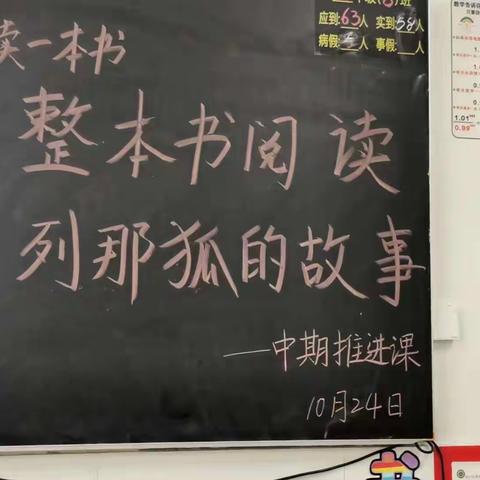 读一本书
整本书阅读
列那狐的故事
——中期推进课
10月24日
班
应到:63人 实到:58人
病假: 人 事假: 人
1.01
0.99